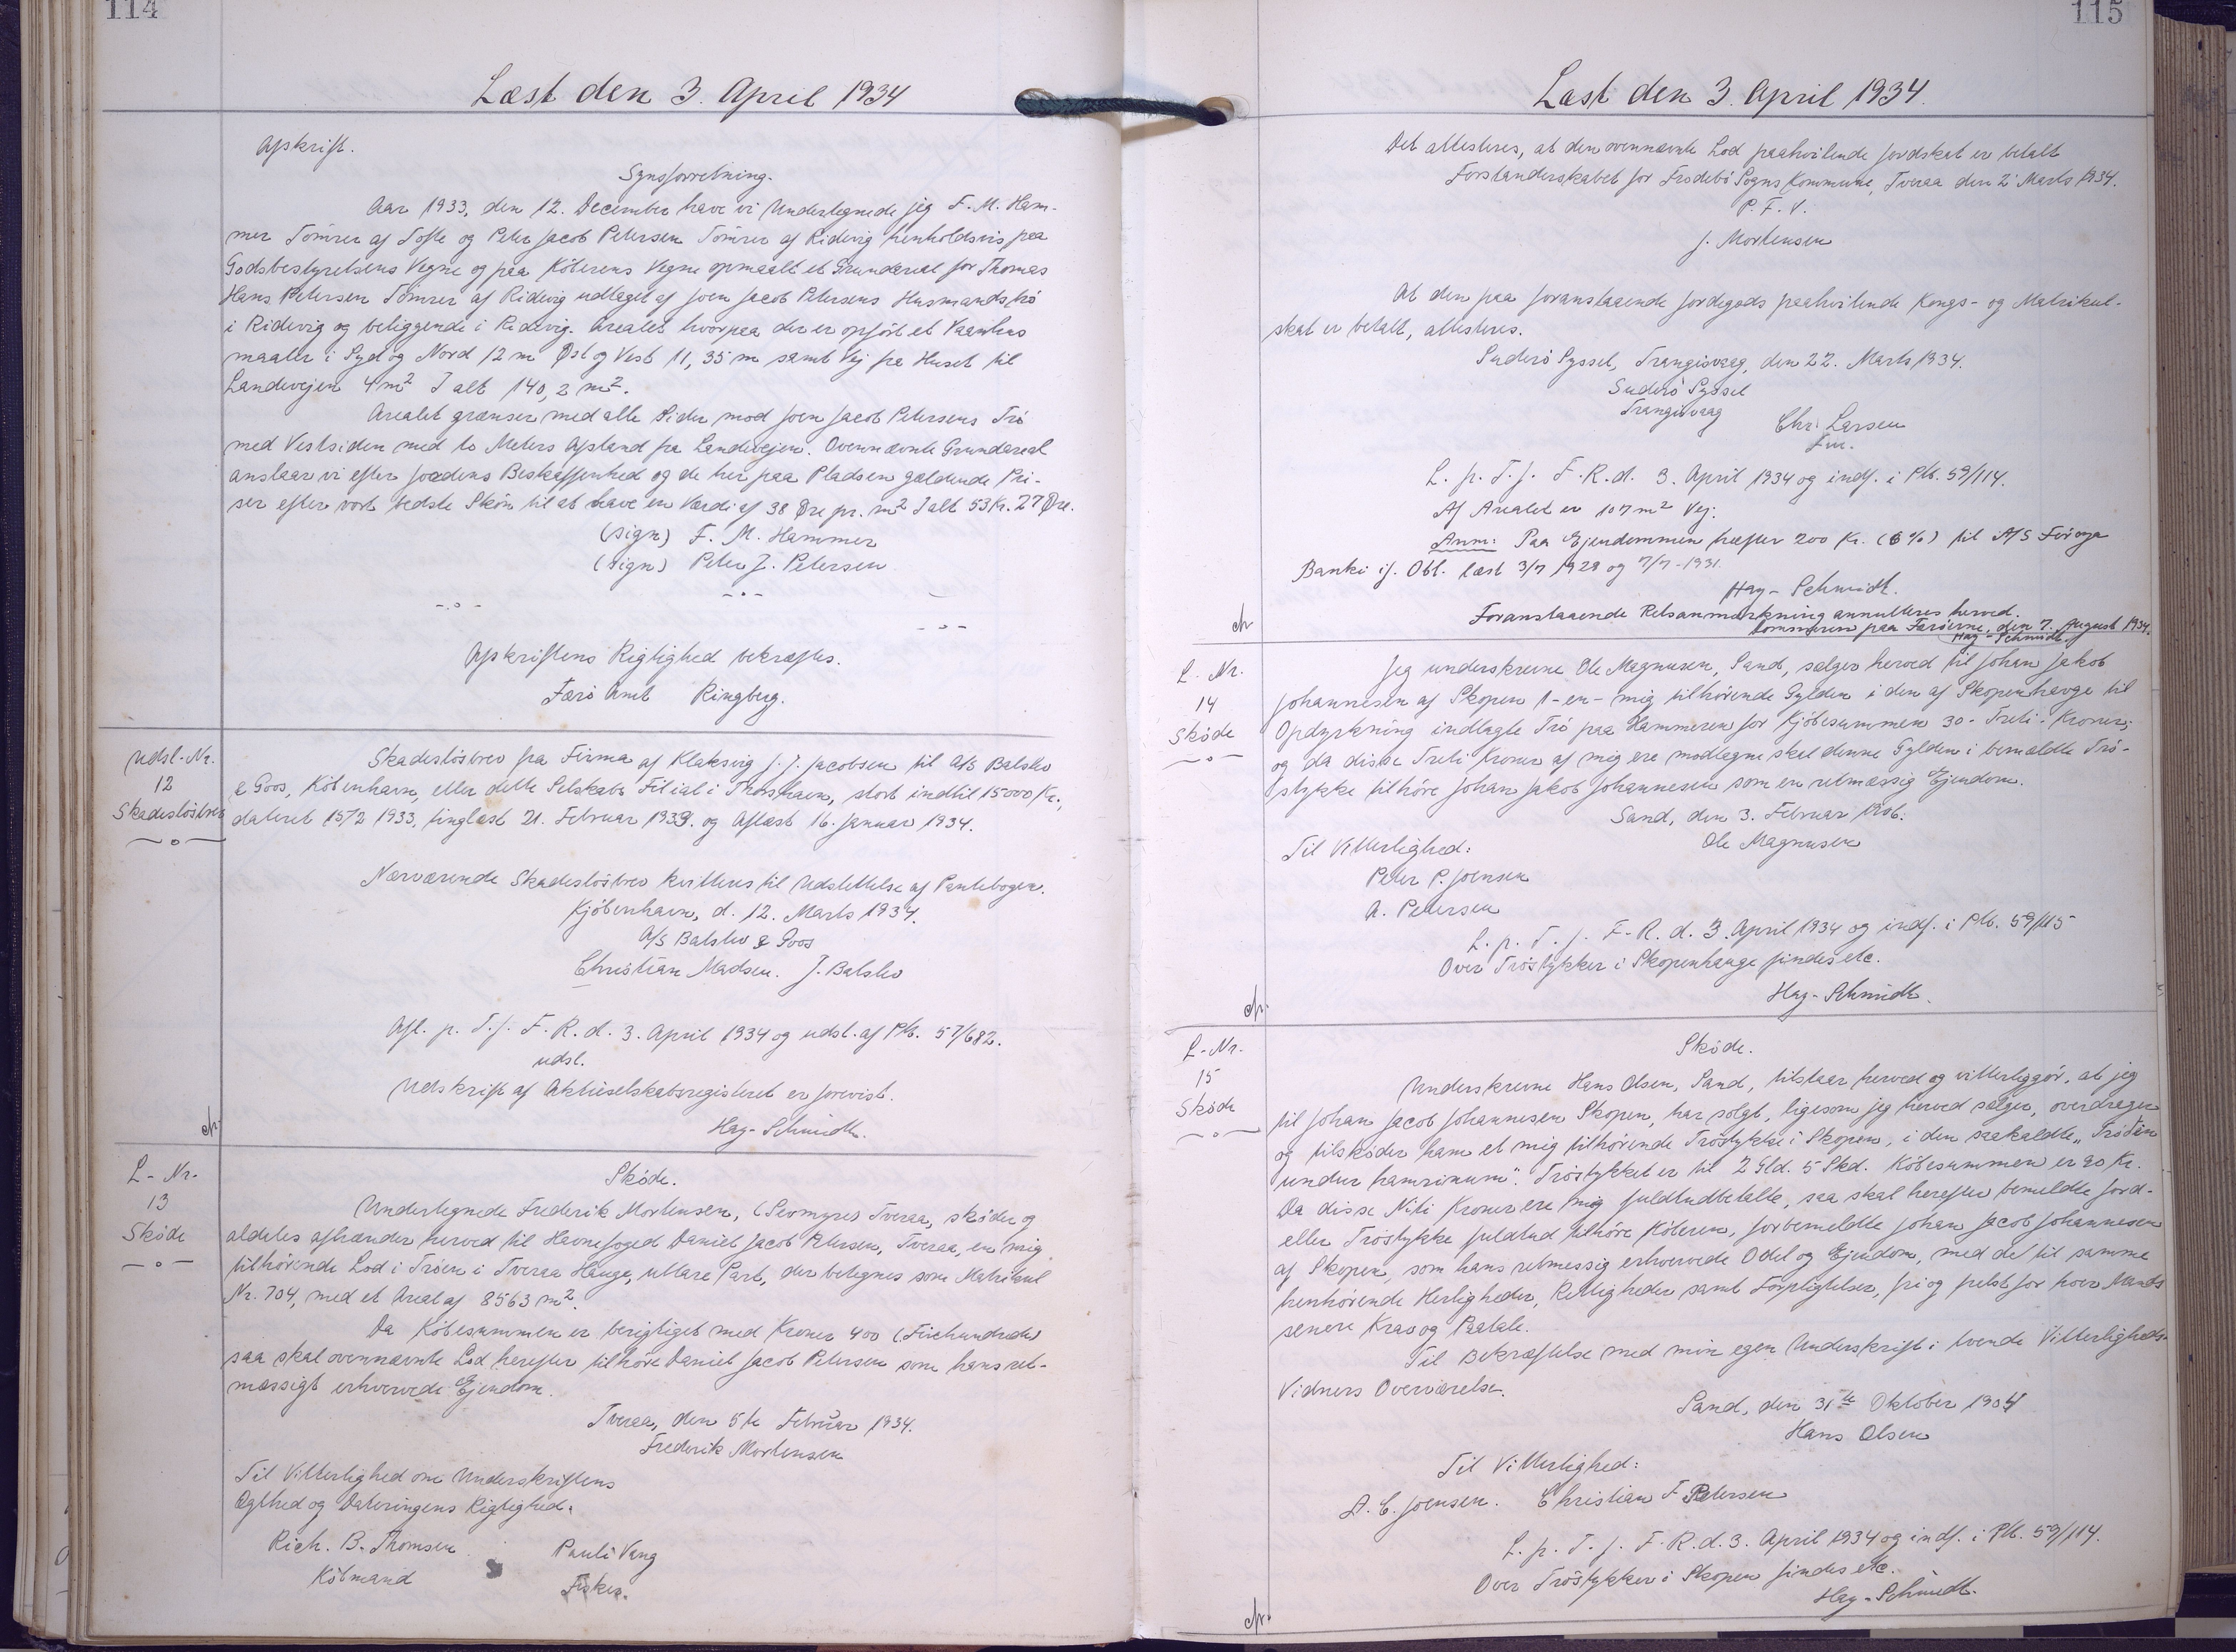 114
Læst den 3. April 1934
Afskrift.
Synsforretning.
Aar 1933, den 12. December have vi Undertegnede jeg F. M. Ham-
mer Tömrer af Tofte og Peter Jacob Petersen Tömrer af Ridevig henholdsvis paa
Godsbestyrelsens Vegne og paa Köberens Vegne opmaalt et Grundareal for Thomas
Hans Petersen Tömrer af Ridevig udlaget af Joen Jacob Petersens Husmandströ
i Ridevig og beliggende i Ridevig. Arealet hvorpaa der er opfört et Vaanhus
maaler i Syd og Nord 12 m Øst og Vest 11,35 m samt Vej fra Huset til
Landevejen 4 m² I alt 140,2 m².
Arealet grænser med alle Sider mod Joen Jacob Petersens Trö
med Vestsiden med to Meters Afstand fra Landevejen. Ovennævnte Grundareal
anslaar vi efter Jordens Beskaffenhed og de her paa Pladsen gældende Pri-
ser efter vort bedste Skön til at have en Værdi af 38 Øre pr. m² I alt 53 Kr. 27 Øre.
(sign) F. M. Hammer
(sign) Peter J. Petersen
Afskriftens Rigtighed bekræftes.
Færö Amt Ringberg.
Udsl.-Nr.
12
Skadeslösbrev
Skadeslösbrev fra Firma af Klaksvig J. J. Jacobsen til A/S Balslev
& Goos, Köbenhavn, eller dette Selskabs Filial i Thorshavn, stort indtil 15000 Kr.,
dateret 15/2 1933, tinglæst 21. Februar 1933. og Aflæst 16. Januar 1934.
Nærværende Skadeslösbrev kvitteres til Udslettelse af Pantebogen.
Kjöbenhavn, d. 12. Marts 1934.
A/S Balslev & Goos
Christian Madsen. J. Balslev
Afl. p. T. f. F. R. d. 3. April 1934 og udsl. af Pb. 57/682.
udsl.
Udskrift af Aktieselskabsregisteret er forevist.
Hag-Schmidt.
L-Nr.
13
Sköde
Sköde.
Undertegnede Frederik Mortensen, (Sevmyres Tveraa, sköder og
aldeles afhænder herved til Havnefoged Daniel Jacob Petersen, Tveraa, en mig
tilhörende Lod i Tröen i Tveraa Hauge, uttare Part, der betegnes som Matrikul
Nr. 704, med et Areal af 8563 m².
Da Köbesummen er berigtiget med Kroner 400 (Firehundrede)
saa skal ovennævnte Lod herefter tilhöre Daniel Jacob Petersen som hans ret-
mæssigt erhvervede Ejendom.
Tveraa, den 5te Februar 1934.
Frederik Mortensen
Til Vitterlighed om Underskriftens
Ægthed og Dateringens Rigtighed:
Rich. B. Thomsen Pauli Vang
Köbmand Fisker.
115
Læst den 3. April 1934.
Det attesteres, at den ovennævnte Lod paahvilende Jordskat er betalt
Forstanderskabet for Frodebö Sogns Kommune, Tveraa den 2' Marts 1934.
P. F. V.
J. Mortensen
At den paa foranstaaende Jordegods paahvilende Kongs- og Matrikul-
skat er betalt, attesteres.
Suderö Syssel, Trangisvaag, den 22. Marts 1934.
Suderö Syssel
Trangisvaag
Chr. Larsen
L. p. T. f. F. R. d. 3. April 1934 og indf. i Pb. 59/114.
Af Arealet er 107 m² Vej.
Anm: Paa Ejendommen hæfter 200 Kr. (6%) til A/S Föroya
Banki if. Obl. læst 3/7 1928 og 7/7-1931.
Hag-Schmidt.
Foranstaaende Retsanmærkning annulleres herved.
Sorenskriveren paa Færöerne, den 7. August 1934.
Hag-Schmidt.
L. Nr.
14
Sköde
Jeg underskrevne Ole Magnusen, Sand, sælger herved til Johan Jakob
Johannesen af Skopen 1-en- mig tilhörende Gylden i den af Skopenhavge til
Opdyrkning indlagte Trö paa Hammeren for Kjöbesummen 30-Treti-Kroner;
og da disse Treti Kroner af mig ere modtagne skal denne Gylden i bemældte Trö-
stykke tilhöre Johan Jakob Johannesen som en retmæssig Ejendom.
Sand, den 3. Februar 1906.
Til Vitterlighed: Ole Magnusen
Peter P. Joensen
A. Petersen
L. p. T. f. F. R. d. 3. April 1934 og indf. i Pb. 59/115
Over Tröstykker i Skopenhauge findes etc.
Hag-Schmidt.
L-Nr.
15
Sköde
Sköde.
Underskrevne Hans Olsen, Sand, tilstaar herved og vitterliggör, at jeg
til Johan Jacob Johannesen Skopen, har solgt, ligesom jeg herved sælger, overdrager
og tilsköder ham et mig tilhörende Tröstykke i Skopen, i den saakaldte „Tröðin
undur hamrinum". Tröstykket er til 2 Gld. 5 Skd. Köbesummen er 90 Kr.
Da disse Niti Kroner ere mig fuldtudbetalte, saa skal herefter bemeldte Jord-
eller Tröstykke fuldtud tilhöre Köberen, forbemeldte Johan Jacob Johannesen
af Skopen, som hans retmessig erhvervede Odel og Ejendom, med de til samme
henhörende Herligheder, Rettigheder samt Forpligtelser, fri og frelst for hver Mands
senere Krav og Paatale.
Til Bekræftelse med min egen Underskrift i tvende Vitterligheds-
Vidners Overværelse.
Sand, den 31te Oktober 1904
Hans Olsen
Til Vitterlighed:
D. C. Joensen. Christian F Petersen
L. p. T. f. F. R. d. 3. April 1934 og indf. i Pb. 59/114.
Over Tröstykker i Skopen findes etc.
Hag-Schmidt.